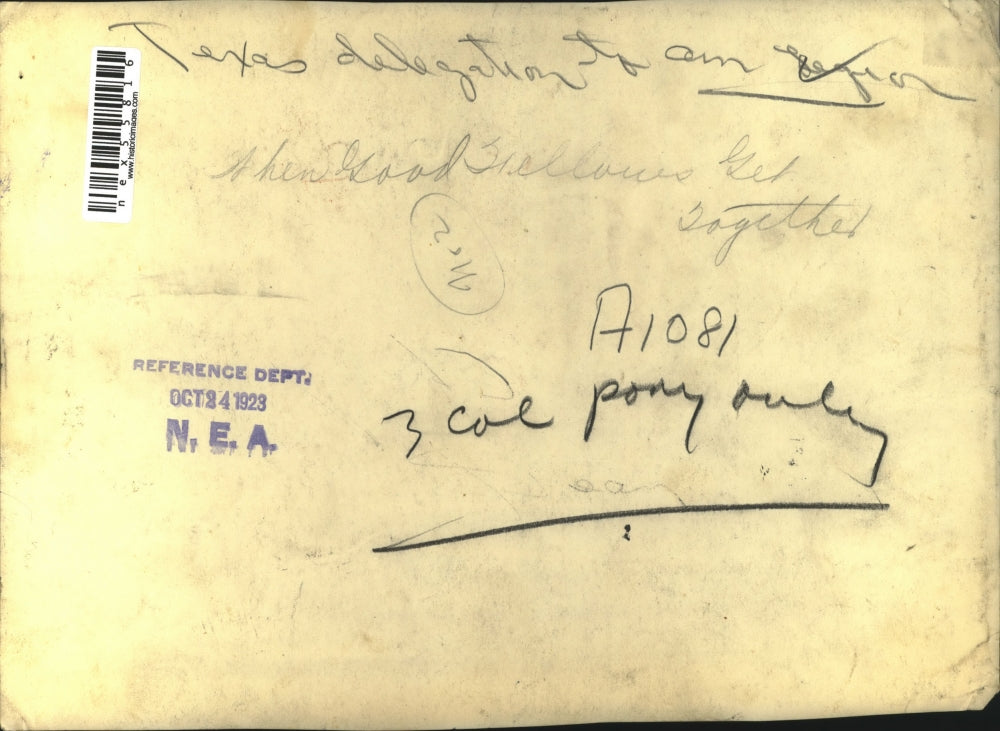 Texas delegation to am Legion
nex55816
www.historicimages.com
When Good Fellows Get
Together
A1081
REFERENCE DEPT.
OCT 24 1923
N. E. A.
3 col pony only